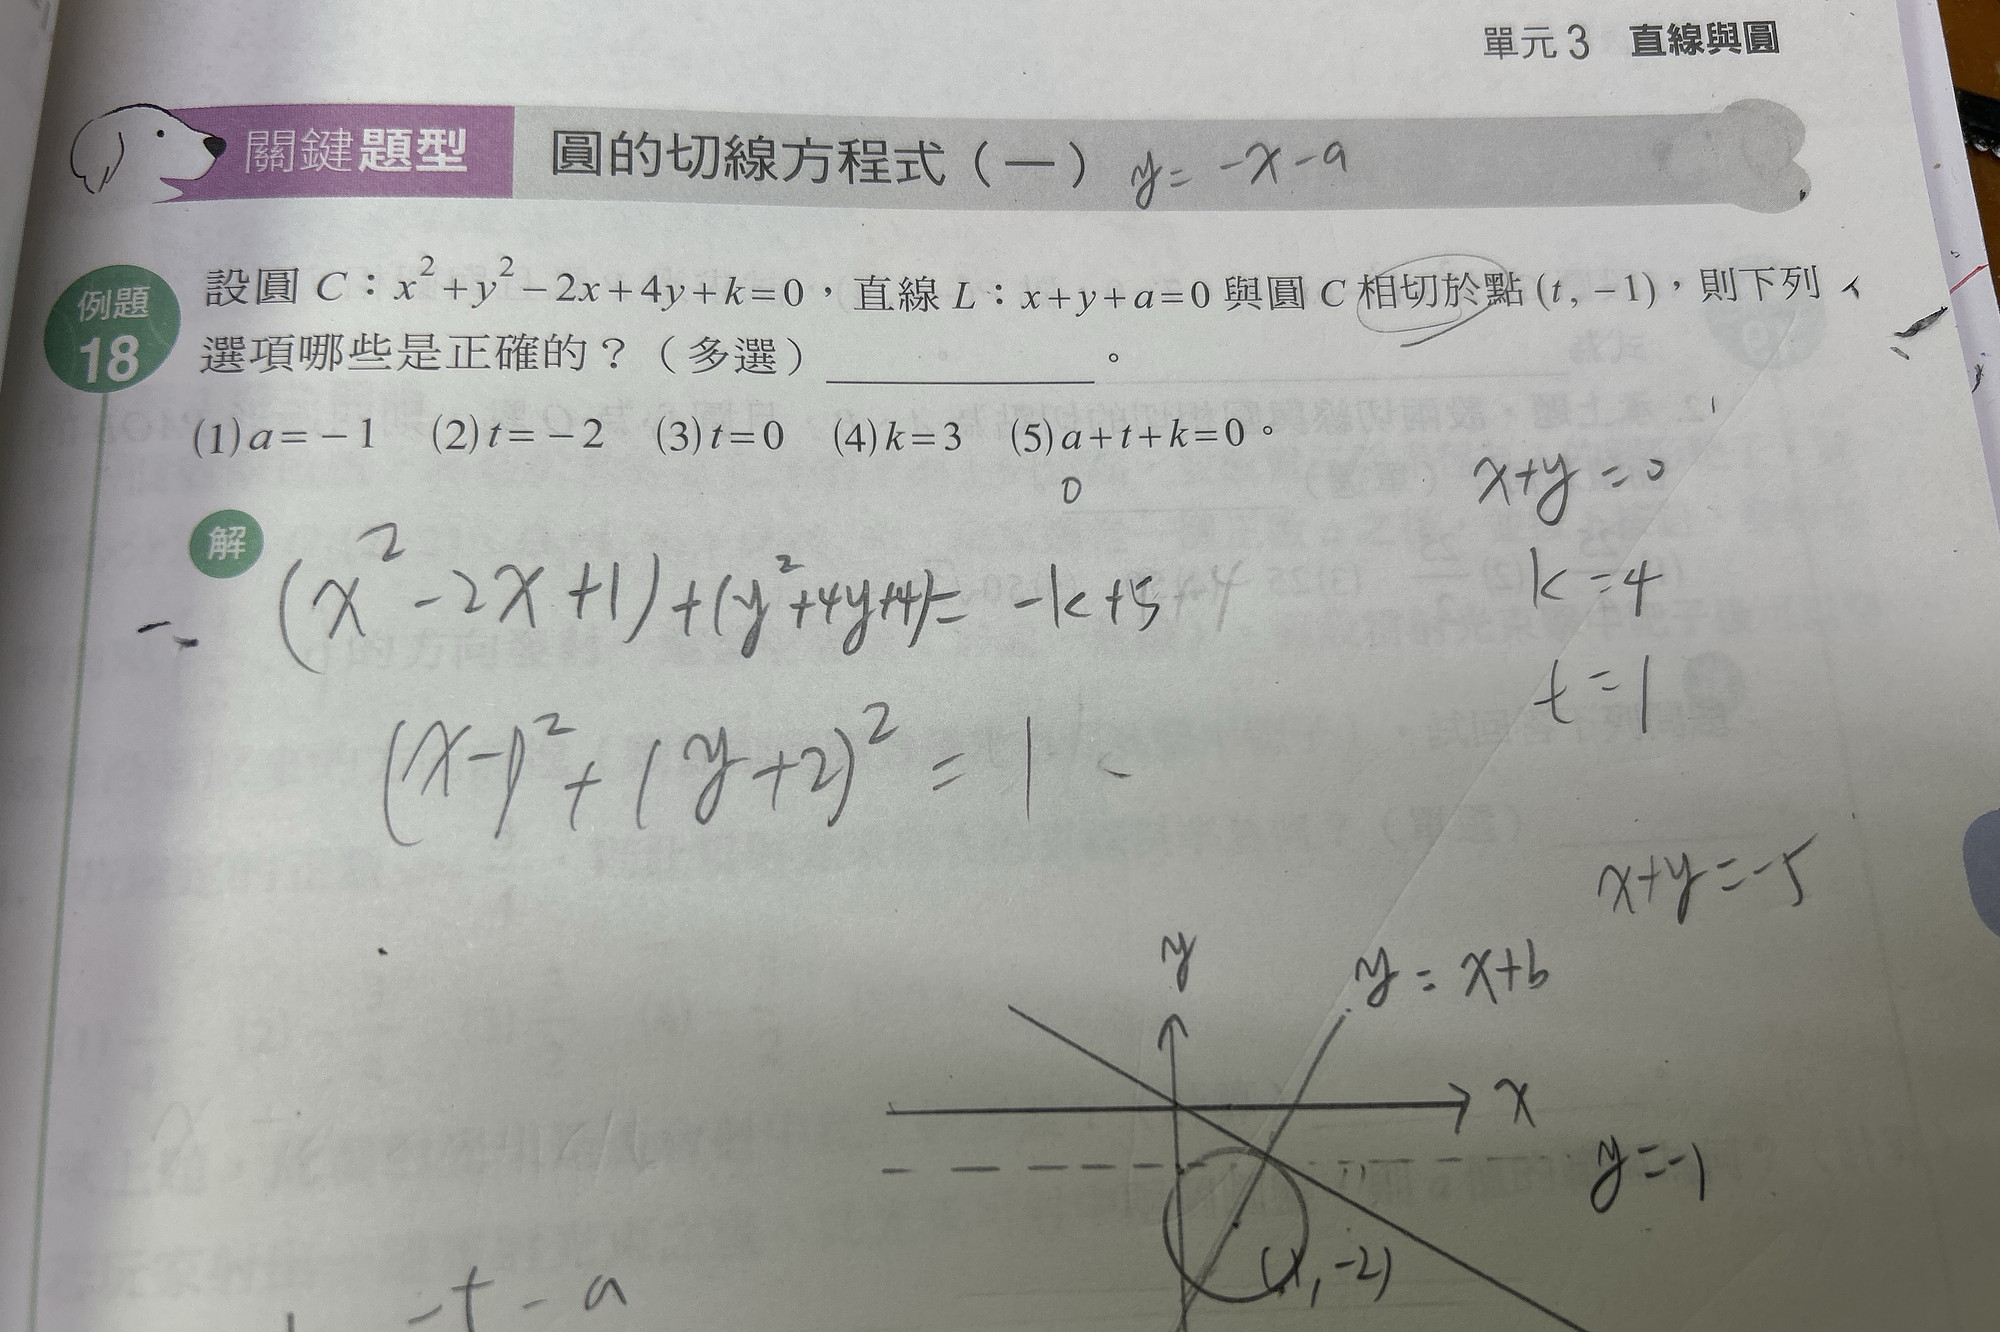 單元3 直線與圓
關鍵題型 圓的切線方程式（一） y = -x-a
例題 18
設圓 C：x²+y²-2x+4y+k=0，直線 L：x+y+a=0 與圓 C 相切於點 (t, -1)，則下列
選項哪些是正確的？（多選）________。
(1) a=-1 (2) t=-2 (3) t=0 (4) k=3 (5) a+t+k=0。
0
x+y=0
解
(x²-2x+1)+(y²+4y+4)= -k+5
k=4
t=1
(x-1)²+(y+2)²=1
x+y=-5
y
y=x+b
x
y=-1
(1,-2)
-t-a